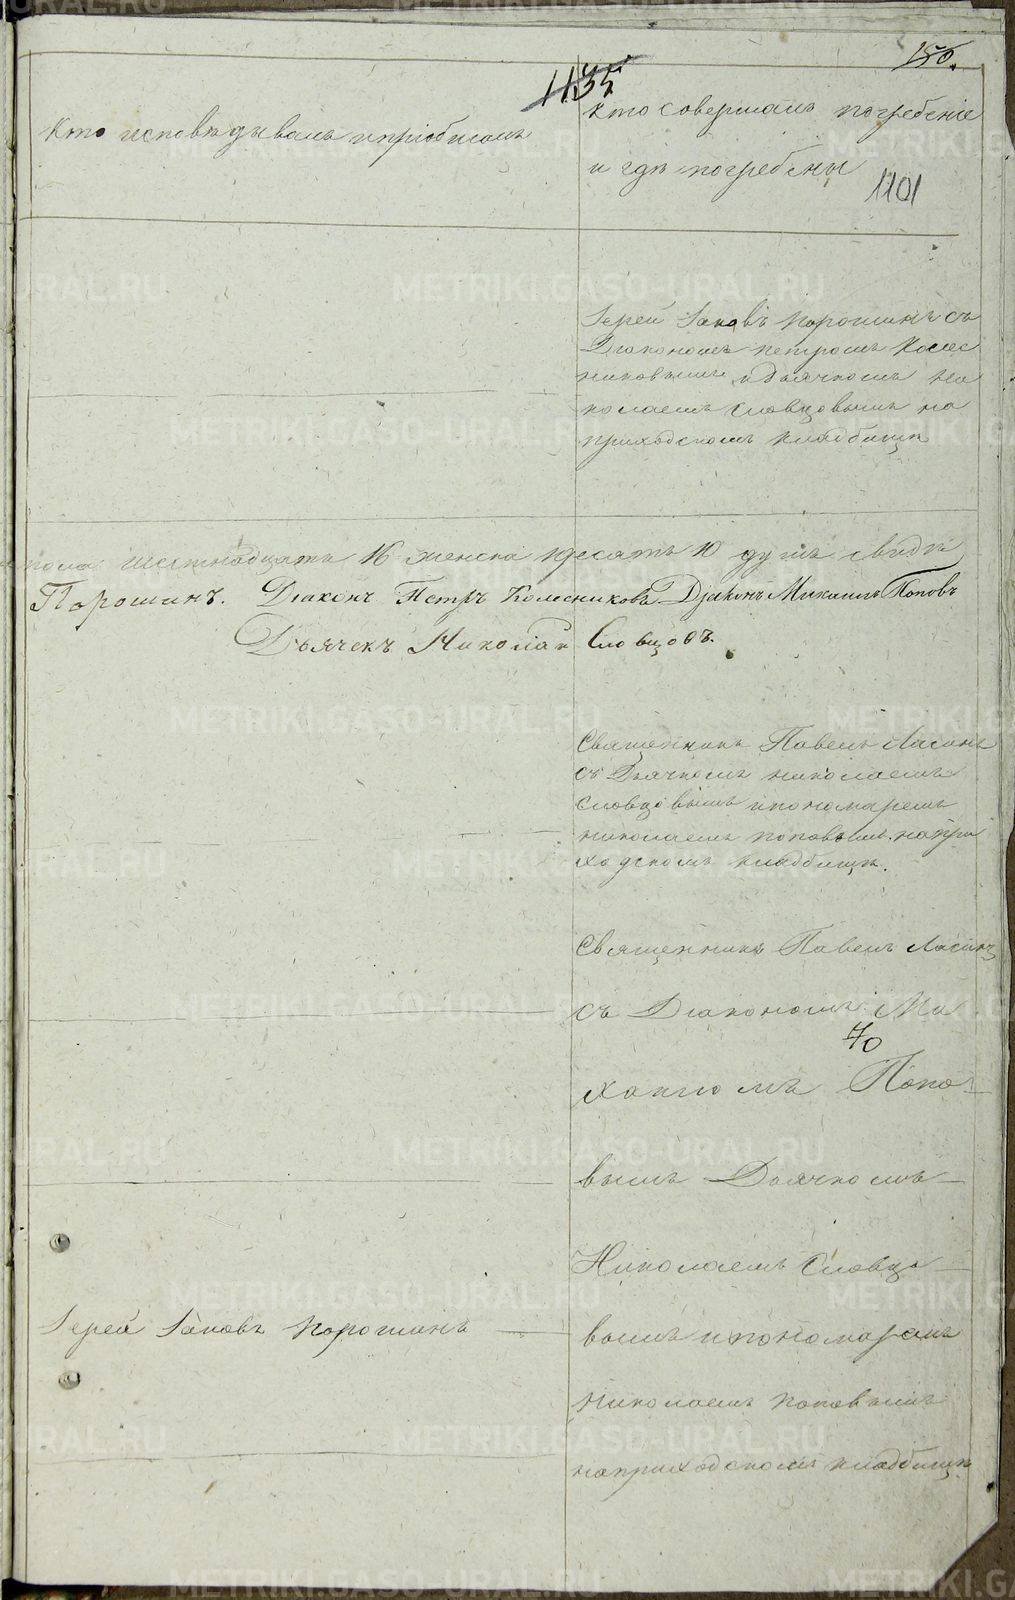 150.
1135
Кто исповѣдывалъ и пріобщалъ
Кто совершалъ погребеніе
и гдѣ погребены
1101
Іерей Іаковъ Порошинъ съ
Діакономъ Петромъ Колес
никовымъ и Дьячкомъ Ни
колаемъ Словцовымъ на
приходскомъ кладбищѣ
пола шестнадцать 16 женска десять 10 душъ свидѣ
Порошинъ. Діаконъ Петръ Колесниковъ Діаконъ Михаилъ Поповъ
Дьячекъ Николай Словцовъ.
Священникъ Павелъ
съ Дьячкомъ Николаемъ
Словцовымъ и пономаремъ
Николаемъ Поповымъ на при
ходскомъ кладбищѣ.
Священникъ Павелъ
съ Діакономъ Ми
70
хаиломъ Попо
вымъ Дьячкомъ
Николаемъ Словцо
Іерей Іаковъ Порошинъ
вымъ и пономаремъ
Николаемъ Поповымъ
на приходскомъ кладбищѣ
METRIKI.GASO-URAL.RU